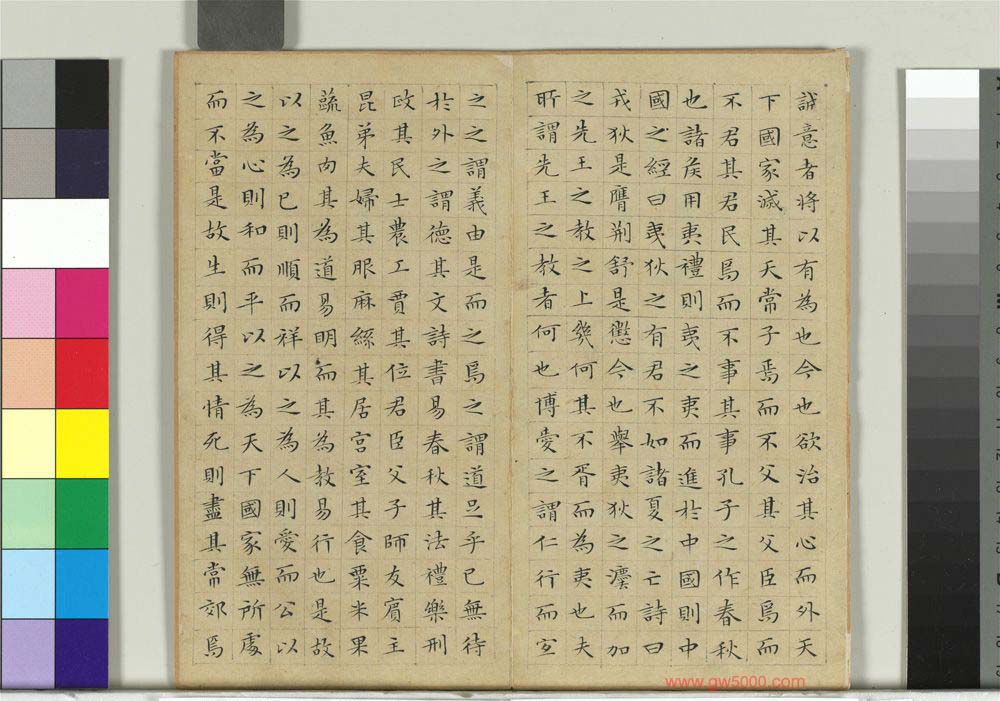 誠意者將以有為也今也欲治其心而外天
下國家滅其天常子焉而不父其父臣焉而
不君其君民焉而不事其事孔子之作春秋
也諸侯用夷禮則夷之夷而進於中國則中
國之經曰夷狄之有君不如諸夏之亡詩曰
戎狄是膺荊舒是懲今也舉夷狄之灋而加
之先王之教之上幾何其不胥而為夷也夫
所謂先王之教者何也博愛之謂仁行而宜
之之謂義由是而之焉之謂道足乎已無待
於外之謂德其文詩書易春秋其法禮樂刑
政其民士農工賈其位君臣父子師友賓主
昆弟夫婦其服麻絲其居宮室其食粟米果
蔬魚肉其為道易明而其為教易行也是故
以之為已則順而祥以之為人則愛而公以
之為心則和而平以之為天下國家無所處
而不當是故生則得其情死則盡其常郊焉
www.gw5000.com